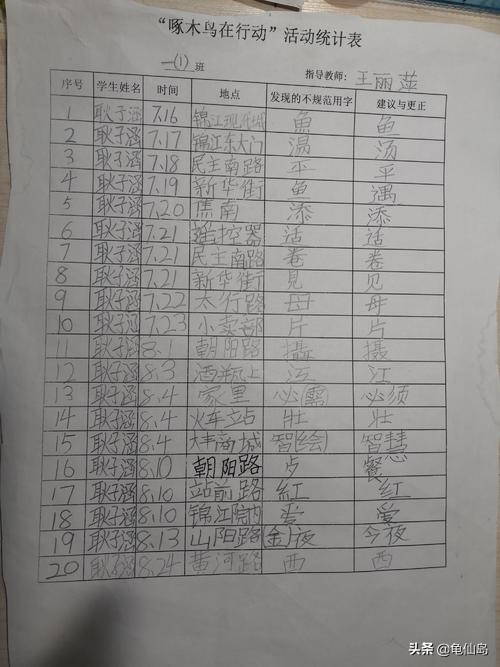 “啄木鸟在行动”活动统计表
一(1)班 指导教师：王丽萍
序号 学生姓名 时间 地点 发现的不规范用字 建议与更正
1 耿子涵 7.16 锦江现代城 魚 鱼
2 耿子涵 7.17 锦江东大门 湯 汤
3 耿子涵 7.18 民主南路 平 平
4 耿子涵 7.19 新华街 鱼 遇
5 耿子涵 7.20 焦南 添 添
6 耿子涵 7.21 遥控器 适 适
7 耿子涵 7.21 民主南路 卷 卷
8 耿子涵 7.21 新华街 見 见
9 耿子涵 7.22 太行路 母 母
10 耿子涵 7.23 小卖部 片 片
11 耿子涵 8.1 朝阳路 攝 摄
12 耿子涵 8.3 酒瓶上 江
13 耿子涵 8.4 家里 必(需) 必须
14 耿子涵 8.4 火车站 壮 壮
15 耿子涵 8.4 商城 智(绘) 智慧
16 耿子涵 8.10 朝阳路 餐
17 耿子涵 8.10 站前路 紅 红
18 耿子涵 8.10 锦江院内 爱 爱
19 耿子涵 8.13 山阳路 (金)夜 今夜
20 耿子涵 8.24 黄河路 西 西
头条 @龟仙岛